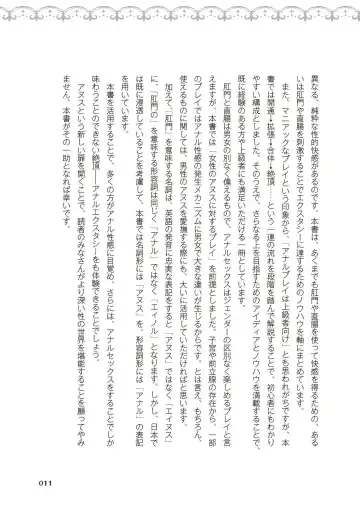 異なる、純粋な性的快感があるのです。本書は、あくまでも肛門や直腸を使って快感を得るための、ある
いは肛門や直腸を刺激することでエクスタシーに達するためのノウハウを軸にまとめています。
また、マニアックなプレイという印象から、「アナルプレイは上級者向け」とも思われがちですが、本
書では開通→拡張→合体→絶頂……という一連の流れを段階を踏んで解説することで、初心者にもわかり
やすい構成としました。そのうえで、さらなる上を目指すためのアイディアとノウハウを満載することで、
既に経験のある方や上級者にも満足いただける一冊としています。
肛門と直腸は男女の別なく備えるもので、アナルセックスはジェンダーの区別なく楽しめるプレイと言
えますが、本書では〈女性のアヌスに対するプレイ〉を前提としました。子宮や前立腺の存在から、一部
のプレイではアナル性感の発生メカニズムに男女で大きな違いが生じるからです。とは言え、もちろん、
使えるものに関しては、男性のアヌスを愛撫する際にも、大いに活用していただければと思います。
加えて、「肛門」を意味する名詞は、英語の発音に忠実な表記をすると「アヌス」ではなく「エイヌス」
に、「肛門の」を意味する形容詞は同じく「アナル」ではなく「エイノル」となります。しかし、日本で
は既に浸透していることを考慮して、本書では名詞形には「アヌス」を、形容詞形には「アナル」の表記
を用いています。
本書を活用することで、多くの方がアナル性感に目覚め、さらには、アナルセックスをすることでしか
味わうことのできない絶頂——アナルエクスタシーをも体験できることでしょう。
アヌスという新しい扉を開くことで、読者のみなさんがより深い性の世界を堪能することを願ってやみ
ません。本書がその一助となれば幸いです。
011